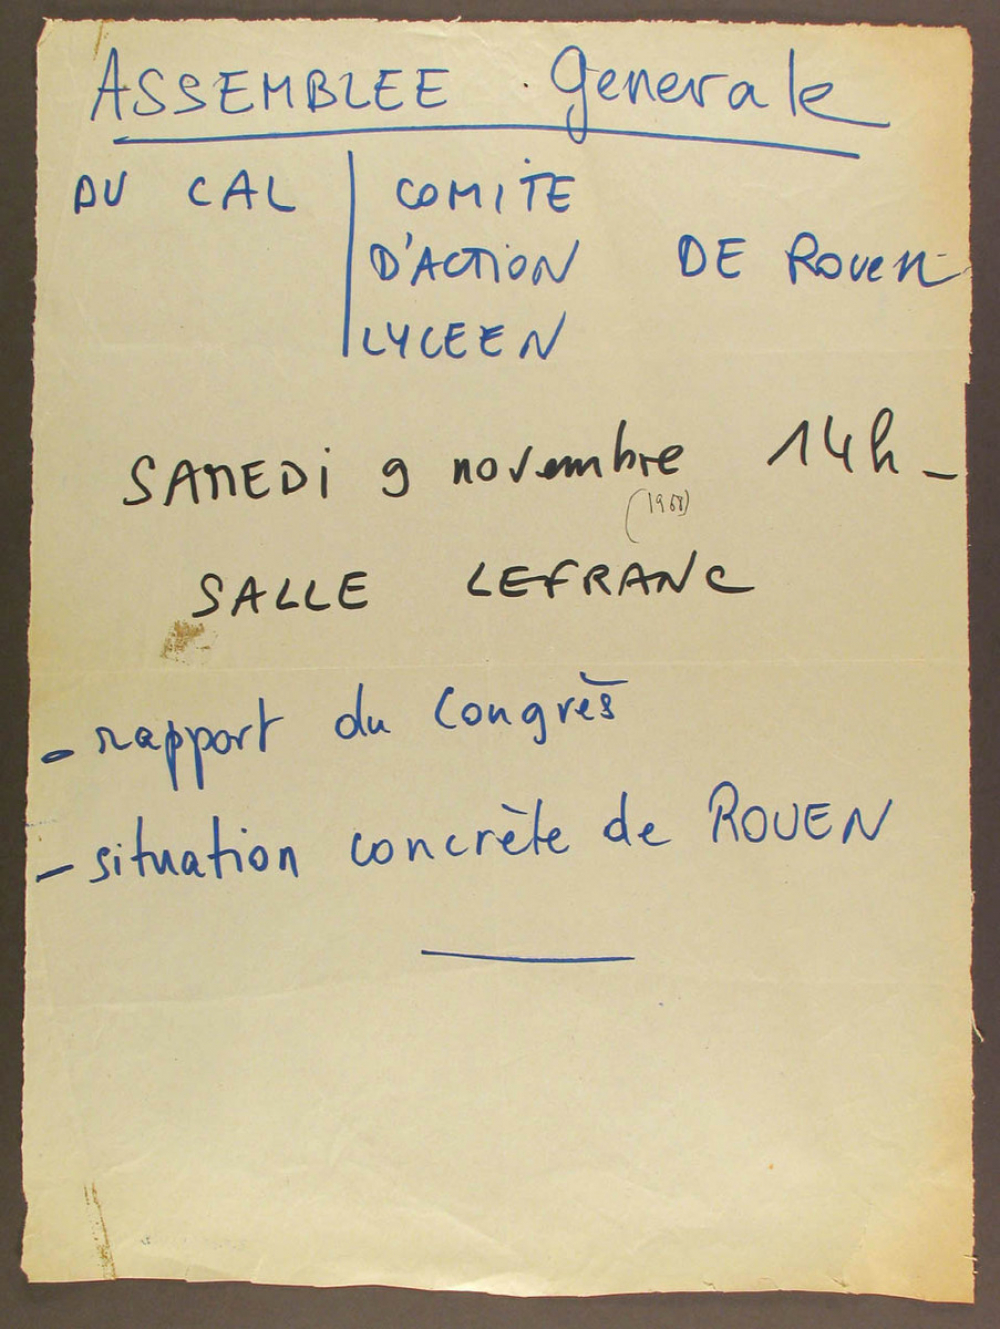 ASSEMBLEE Generale
DU CAL | COMITE
D'ACTION DE Rouen
LYCEEN
SAMEDI 9 novembre 14h -
(1968)
SALLE LEFRANC
- rapport du Congrès
- situation concrète de ROUEN